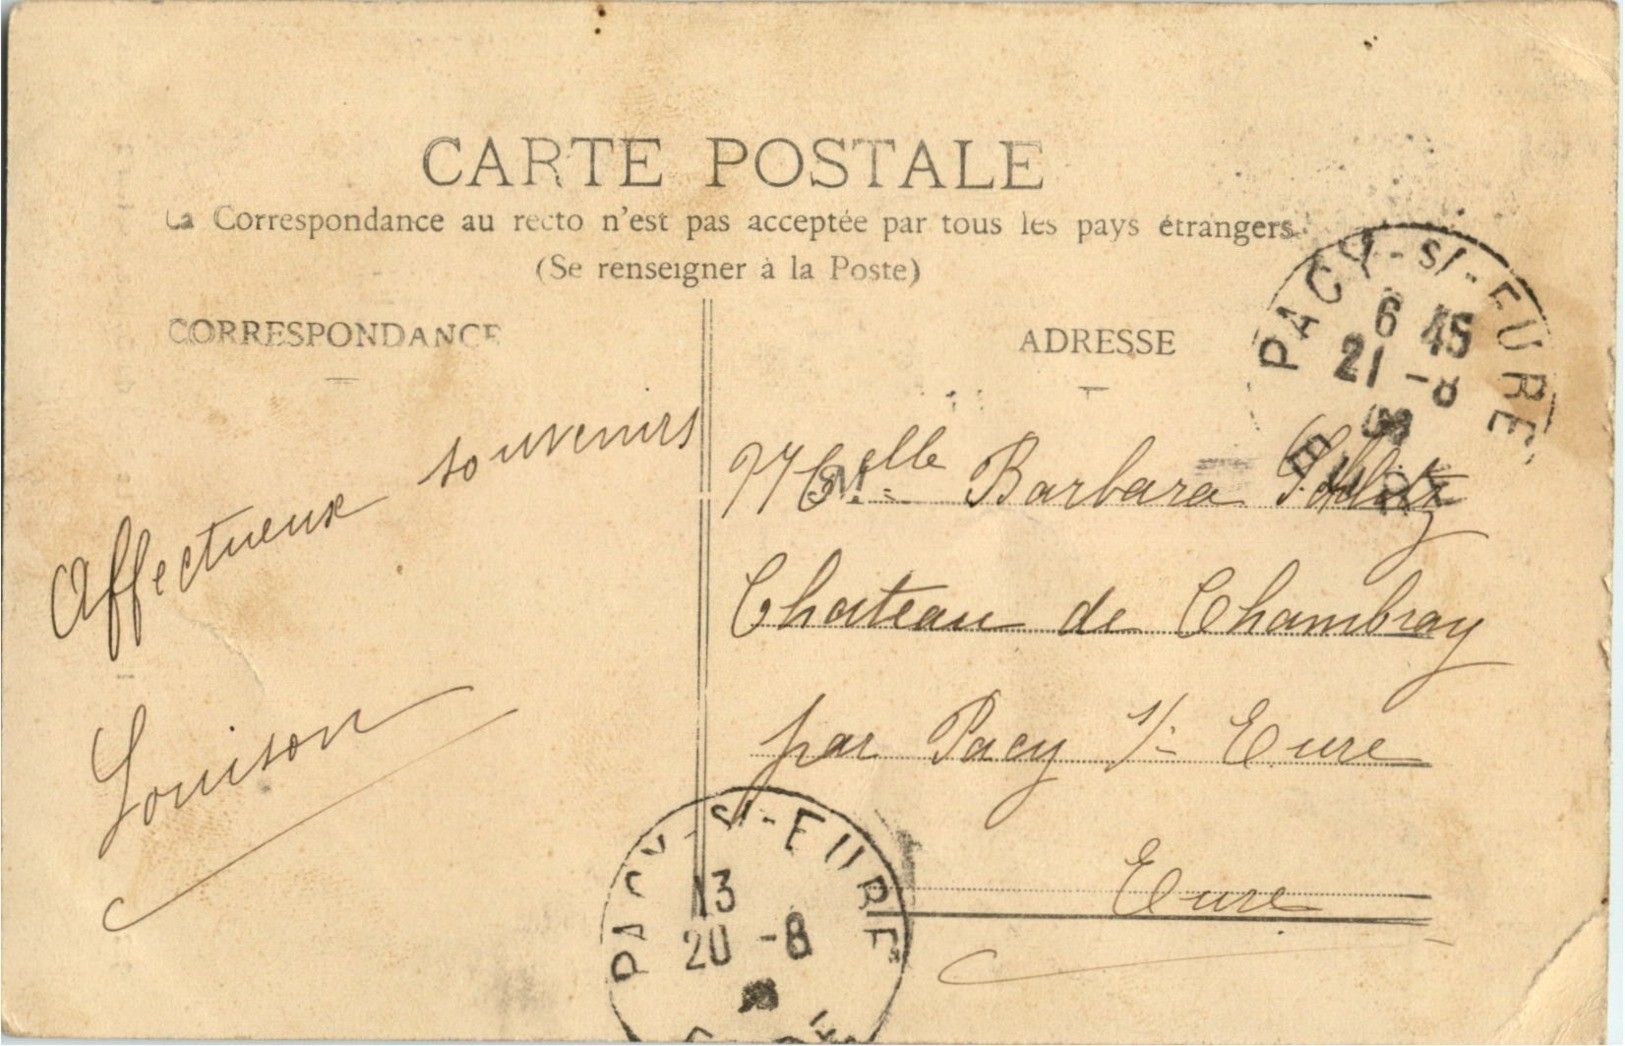 CARTE POSTALE
La Correspondance au recto n'est pas acceptée par tous les pays étrangers
(Se renseigner à la Poste)
CORRESPONDANCE
Affectueux souvenirs
Louison
ADRESSE
Melle Barbara
Chateau de Chambray
par Pacy s/- Eure
Eure
PACY-S/-EURE
6 45
21 -8
EURE
PACY-S/-EURE
13
20 -8